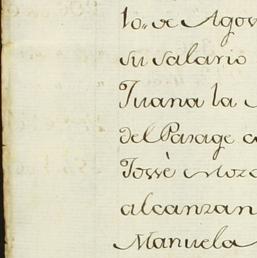 to,, de Agos
su salario
Juana la
del Parage
Jossè Moz
alcanzan
Manuela